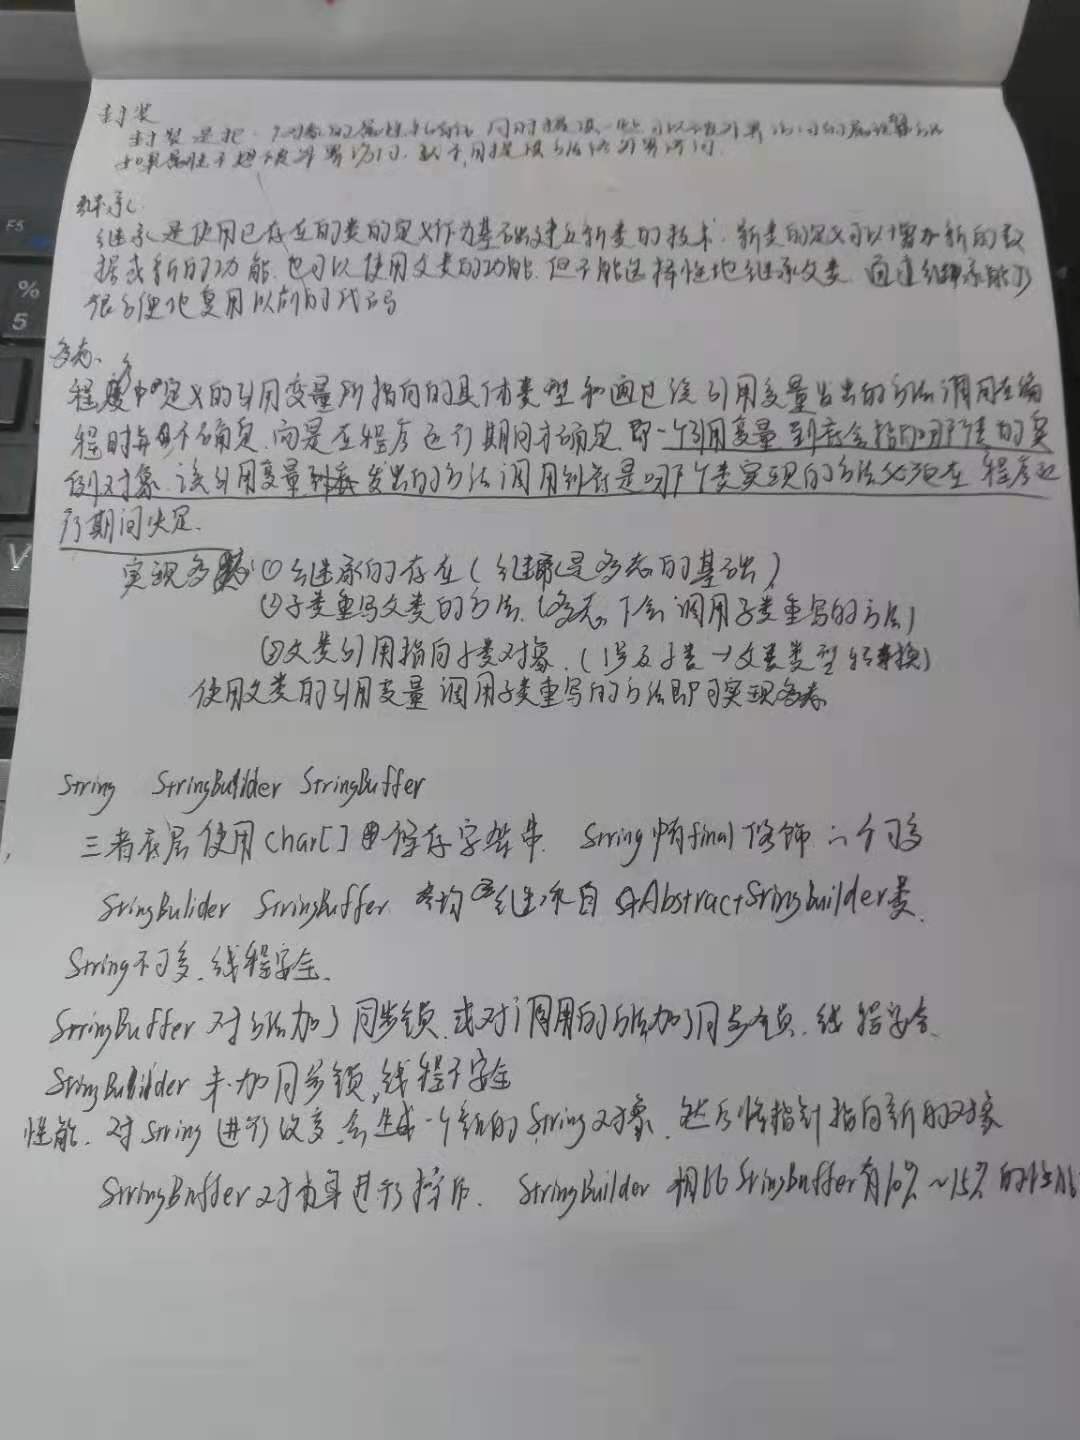 封装
封装是把一个对象的属性私有化 同时提供一些可以被外界访问的属性的方法
如果属性不想被外界访问,就不用提供方法给外界访问.
继承
继承是使用已存在的类的定义作为基础建立新类的技术.新类的定义可以增加新的数
据或新的功能.也可以使用父类的功能.但不能选择性地继承父类 通过继承能够
很方便地复用以前的代码
多态.
程序中定义的引用变量所指向的具体类型和通过该引用变量发出的方法调用在编
程时并不确定.而是在程序运行期间才确定.即一个引用变量到底会指向哪个类的实
例对象.该引用变量发出的方法调用到底是哪个类实现的方法必须在 程序运
行期间决定.
实现多态:①继承的存在(继承是多态的基础)
②子类重写父类的方法.(多态下会调用子类重写的方法)
③父类引用指向子类对象.(涉及子类→父类类型转换)
使用父类的引用变量 调用子类重写的方法即可实现多态
String StringBuilder StringBuffer
三者底层使用char[]保存字符串. String有final修饰 不可变
StringBulider StringBuffer 均继承自AbstractStringbuilder类.
String不可变.线程安全.
StringBuffer 对方法加了同步锁.或对调用的方法加了同步锁.线程安全.
StringBuilder 未加同步锁,线程不安全
性能.对String进行改变.会生成一个新的String对象.然后将指针指向新的对象
StringBuffer对本身进行操作. StringBuilder 相比StringBuffer有10%~15%的性能